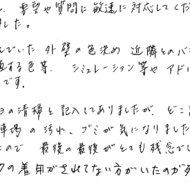 、要望や質問に敏速に対応してくだ
ました。
んでいた 外壁の色決め 近隣とのバ
する色等、シミュレーション等や アド
です。
日の清掃と記入してありましたが、どこ
の汚れ、ゴミが気になりました
ので 最後の最後がとても残念でし
の着用がされてない方がいたのが